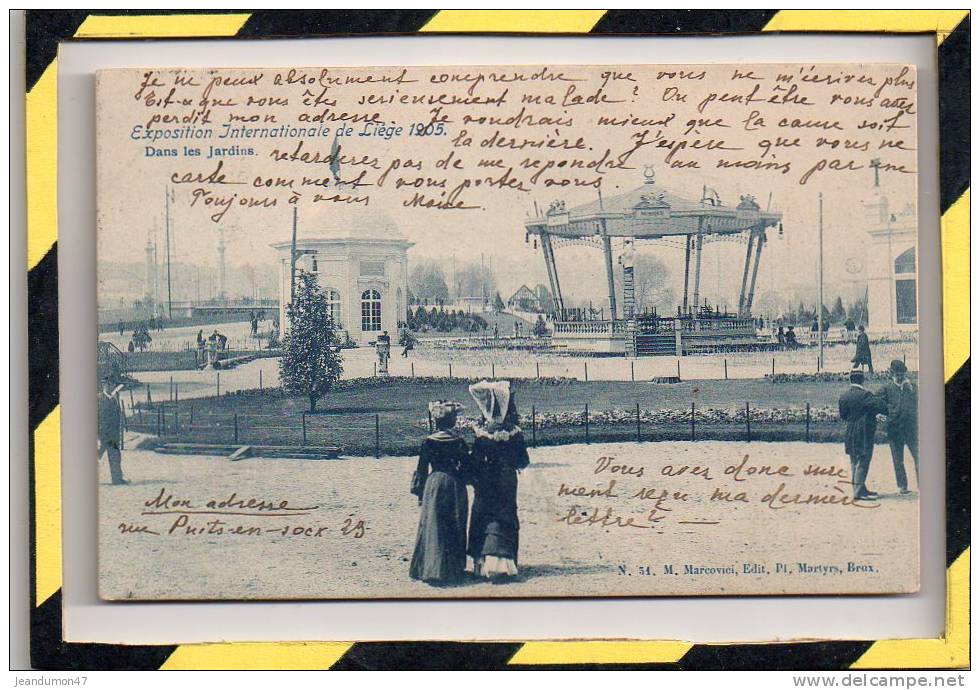 Je ne peux absolument comprendre que vous ne m'écrivez plus
Est-ce que vous êtes serieusement malade? Ou peut être vous avez
perdit mon adresse. Je voudrais mieux que la cause soit
Exposition Internationale de Liège 1905.
la dernière. J'espère que vous ne
Dans les Jardins.
retarderez pas de me repondre au moins par une
carte comment vous portez vous.
Toujours à vous
Vous avez donc sure-
ment reçu ma dernière
lettre?
Mon adresse
rue Puits-en-sock 29
N. 51. M. Marcovici, Edit. Pl. Martyrs, Brux.
Jeandumon47
www.delcampe.net